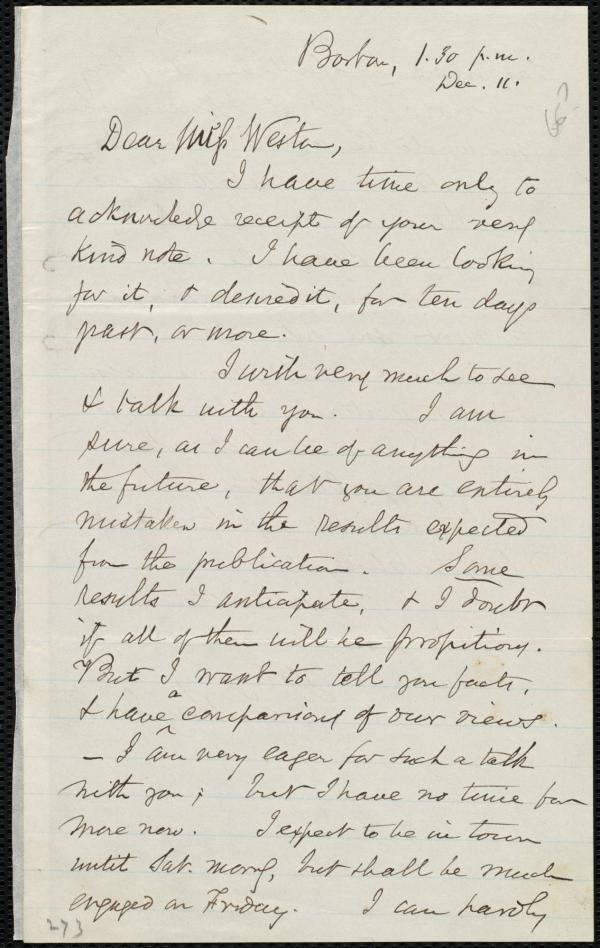 Boston, 1.30 p.m.
Dec. 11.
Dear Miss Weston,
I have time only to
acknowledge receipt of your very
kind note. I have been looking
for it, & desired it, for ten days
past, or more.
I wish very much to see
& talk with you. I am
sure, as I can be of anything in
the future, that you are entirely
mistaken in the results expected
from the publication. Some
results I anticipate, & I doubt
if all of them will be propitious.
But I want to tell you facts,
& have a comparison of our views.
– I am very eager for such a talk
with you; but I have no time for
more now. I expect to be in town
until Sat. morng, but shall be much
engaged on Friday. I can hardly
273